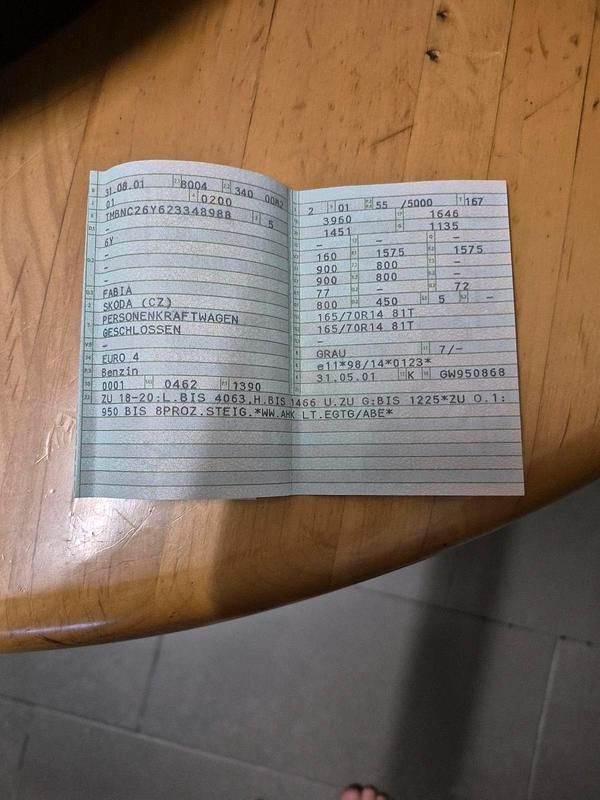 31.08.01 8004 340 0082
01 0200
TMBNC26Y623348988 5
-
6Y
-
-
-
FABIA
SKODA (CZ)
PERSONENKRAFTWAGEN
GESCHLOSSEN
-
EURO 4
Benzin
0001 0462 1390
2 01 55 /5000 167
3960 1646
1451 1135
- - -
160 1575 1575
900 800 -
900 800 -
77 - 72
800 450 5 -
165/70R14 81T
165/70R14 81T
-
GRAU 7/-
e11*98/14*0123*
31.05.01 K GW950868
ZU 18-20:L.BIS 4063,H.BIS 1466 U.ZU G:BIS 1225*ZU O.1:
950 BIS 8PROZ.STEIG.*WW.AHK LT.EGTG/ABE*